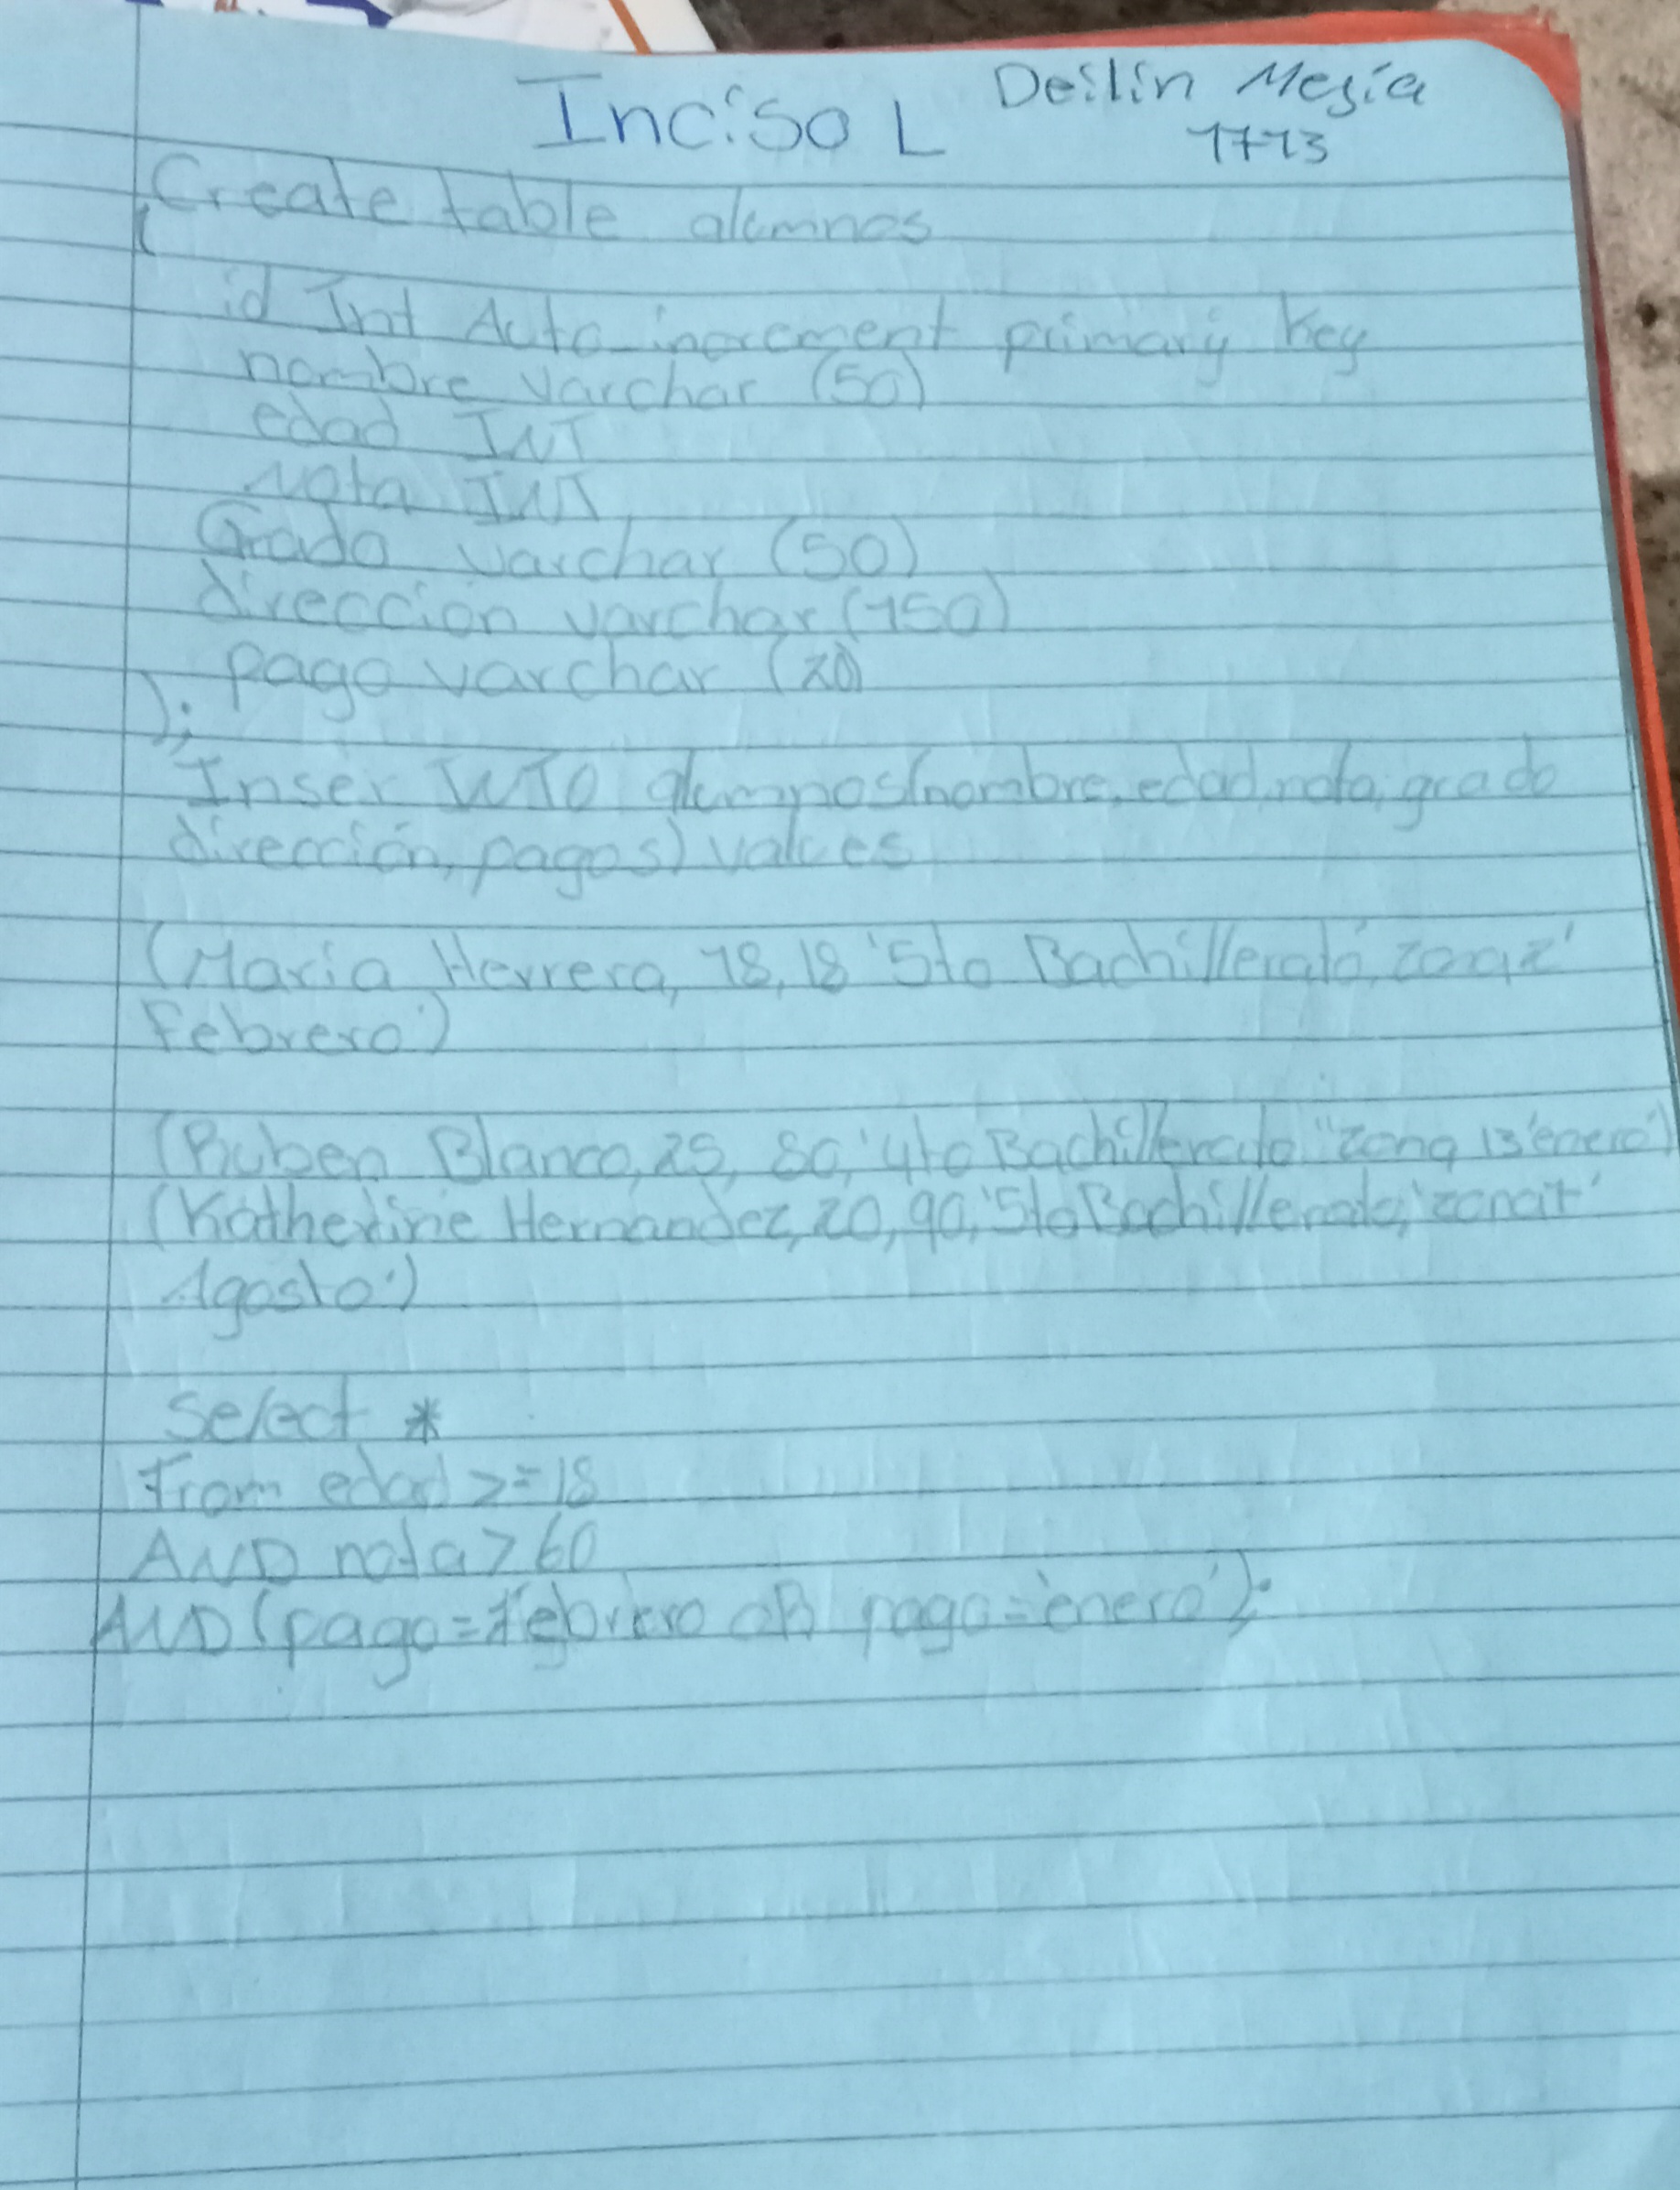 Inciso L Deilin Mejía
1773
Create table alumnos
(
id Int Auto_increment primary key
nombre varchar (50)
edad INT
Nota INT
Grado varchar (50)
dirección varchar (150)
pago varchar (20)
);
Inser INTO alumnos(nombre, edad, nota, grado
dirección, pagos) values
(María Herrera, 18, 18 '5to Bachillerato', zona 2'
Febrero')
(Ruben Blanco, 25, 80, '4to Bachillerato "zona 13 'enero')
(Katherine Hernandez, 20, 90, '5to Bachillerato, 'zona
Agosto')
Select *
From edad >= 18
AND nota > 60
AND (pago = febrero OR pago = 'enero');